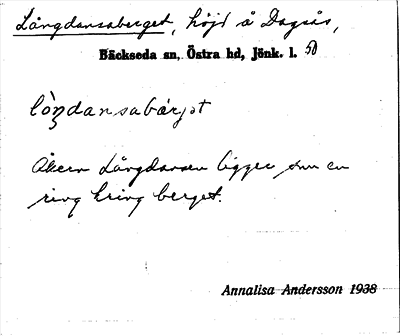 Långdansaberget, höjd å Dagsås,
Bäckseda sn, Östra hd, Jönk. l. 50
lòŋdansabärjət
Åkern Långdansen ligger som en
ring kring berget.
Annalisa Andersson 1938